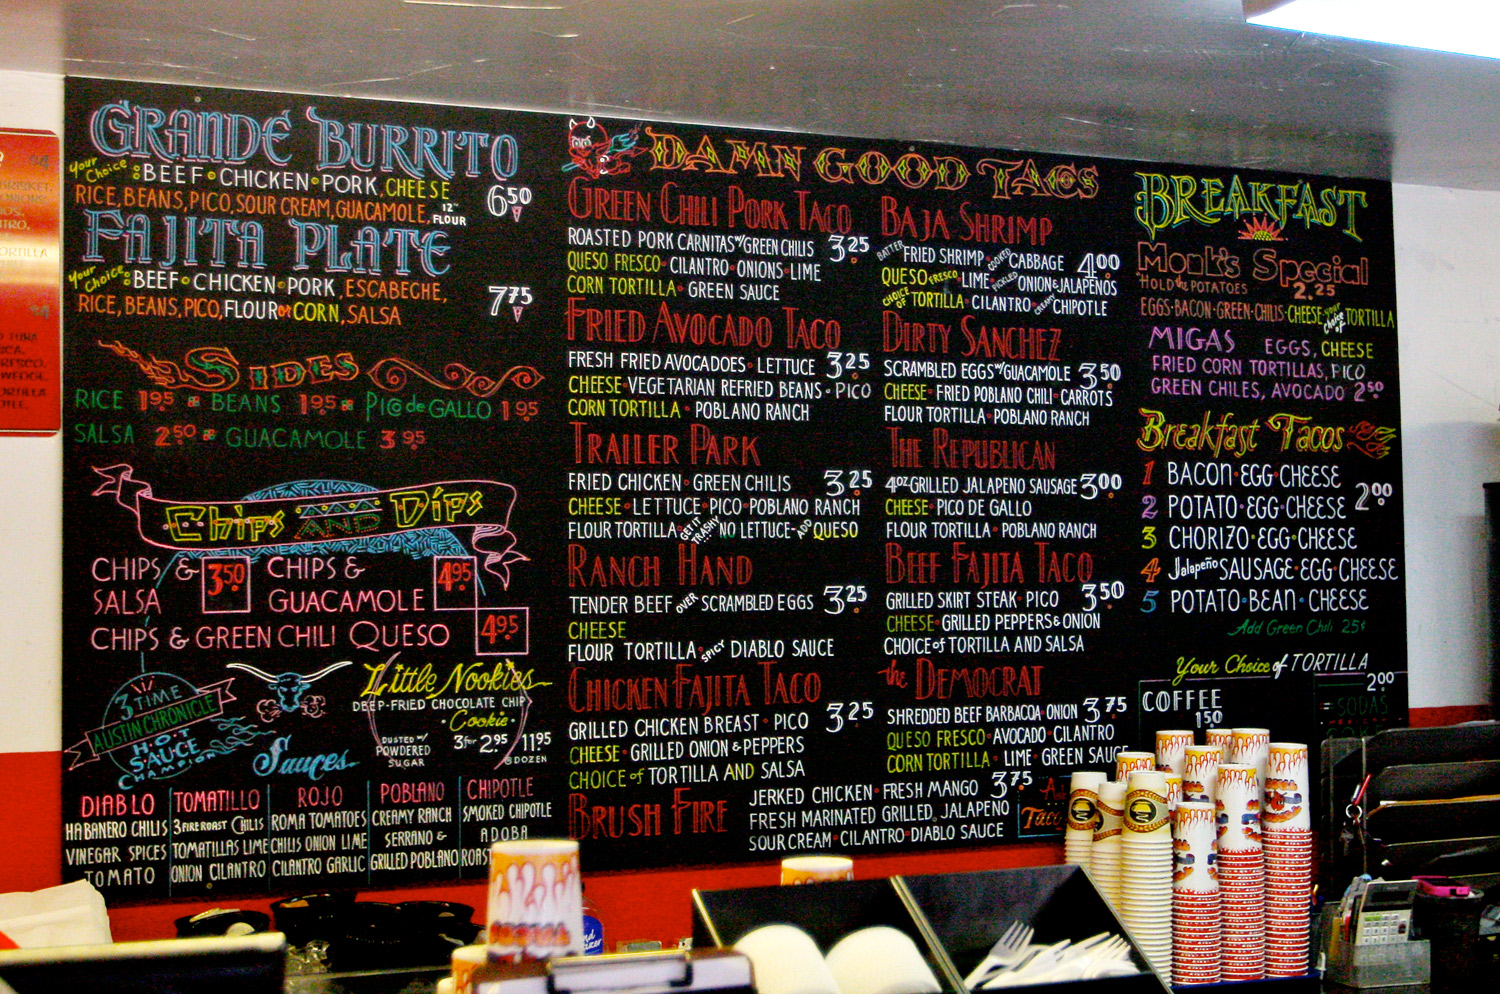 GRANDE BURRITO
Your Choice: BEEF · CHICKEN · PORK, CHEESE
RICE, BEANS, PICO, SOUR CREAM, GUACAMOLE, 12" FLOUR
6.50
FAJITA PLATE
Your Choice: BEEF · CHICKEN · PORK, ESCABECHE,
RICE, BEANS, PICO, FLOUR or CORN, SALSA
7.75
SIDES
RICE 1.95 BEANS 1.95 PICO de GALLO 1.95
SALSA 2.50 GUACAMOLE 3.95
Chips AND Dips
CHIPS & SALSA 3.50
CHIPS & GUACAMOLE 4.95
CHIPS & GREEN CHILI QUESO 4.95
3 TIME
AUSTIN CHRONICLE
HOT
SAUCE
CHAMPION
Little Nookies
DEEP-FRIED CHOCOLATE CHIP
Cookie
DUSTED W/ POWDERED SUGAR
3 for 2.95
11.95 @ DOZEN
Sauces
DIABLO
HABANERO CHILIS
VINEGAR SPICES
TOMATO
TOMATILLO
3 FIRE ROAST CHILIS
TOMATILLAS LIME
ONION CILANTRO
ROJO
ROMA TOMATOES
CHILIS ONION LIME
CILANTRO GARLIC
POBLANO
CREAMY RANCH
SERRANO &
GRILLED POBLANO
CHIPOTLE
SMOKED CHIPOTLE
ADOBA
DAMN GOOD TACOS
GREEN CHILI PORK TACO
ROASTED PORK CARNITAS W/ GREEN CHILIS 3.25
QUESO FRESCO · CILANTRO · ONIONS · LIME
CORN TORTILLA · GREEN SAUCE
FRIED AVOCADO TACO
FRESH FRIED AVOCADOES · LETTUCE 3.25
CHEESE · VEGETARIAN REFRIED BEANS · PICO
CORN TORTILLA · POBLANO RANCH
TRAILER PARK
FRIED CHICKEN · GREEN CHILIS 3.25
CHEESE · LETTUCE · PICO · POBLANO RANCH
FLOUR TORTILLA · GET IT TRASHY NO LETTUCE - ADD QUESO
RANCH HAND
TENDER BEEF OVER SCRAMBLED EGGS 3.25
CHEESE
FLOUR TORTILLA · SPICY DIABLO SAUCE
CHICKEN FAJITA TACO
GRILLED CHICKEN BREAST · PICO 3.25
CHEESE · GRILLED ONION & PEPPERS
CHOICE of TORTILLA AND SALSA
BRUSH FIRE
JERKED CHICKEN · FRESH MANGO 3.75
FRESH MARINATED GRILLED JALAPENO
SOUR CREAM · CILANTRO · DIABLO SAUCE
BAJA SHRIMP
BATTER FRIED SHRIMP · COOKED CABBAGE 4.00
QUESO FRESCO · LIME · PICKLED ONION & JALAPEÑOS
CHOICE OF TORTILLA · CILANTRO · CREAMY CHIPOTLE
DIRTY SANCHEZ
SCRAMBLED EGGS W/ GUACAMOLE 3.50
CHEESE · FRIED POBLANO CHILI · CARROTS
FLOUR TORTILLA · POBLANO RANCH
THE REPUBLICAN
4oz GRILLED JALAPENO SAUSAGE 3.00
CHEESE · PICO DE GALLO
FLOUR TORTILLA · POBLANO RANCH
BEEF FAJITA TACO
GRILLED SKIRT STEAK · PICO 3.50
CHEESE · GRILLED PEPPERS & ONION
CHOICE of TORTILLA AND SALSA
the DEMOCRAT
SHREDDED BEEF BARBACOA · ONION 3.75
QUESO FRESCO · AVOCADO · CILANTRO
CORN TORTILLA · LIME · GREEN SAUCE
BREAKFAST
Monk's Special
HOLD the POTATOES 2.25
EGGS · BACON · GREEN · CHILIS · CHEESE your choice of TORTILLA
MIGAS EGGS, CHEESE
FRIED CORN TORTILLAS, PICO
GREEN CHILES, AVOCADO 2.50
Breakfast Tacos
1 BACON · EGG · CHEESE
2 POTATO · EGG · CHEESE 2.00
3 CHORIZO · EGG · CHEESE
4 Jalapeño SAUSAGE · EGG · CHEESE
5 POTATO · BEAN · CHEESE
Add Green Chili 25¢
Your Choice of TORTILLA
COFFEE
1.50
2.00
SODAS